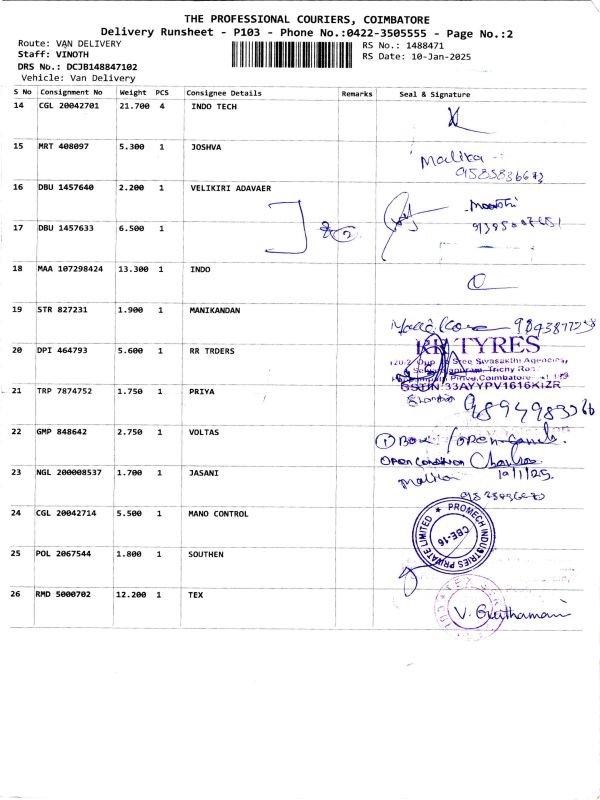 THE PROFESSIONAL COURIERS, COIMBATORE
Delivery Runsheet - P103 - Phone No.:0422-3505555 - Page No.:2
Route: VAN DELIVERY
Staff: VINOTH
DRS No.: DCJB148847102
Vehicle: Van Delivery
RS No.: 1488471
RS Date: 10-Jan-2025
S No Consignment No Weight PCS Consignee Details Remarks Seal & Signature
14 CGL 20042701 21.700 4 INDO TECH
15 MRT 408097 5.300 1 JOSHVA
Malika
9585836673
16 DBU 1457640 2.200 1 VELIKIRI ADAVAER
17 DBU 1457633 6.500 1
18 MAA 107298424 13.300 1 INDO
19 STR 827231 1.900 1 MANIKANDAN
20 DPI 464793 5.600 1 RR TRDERS
RR TYRES
Sree Swasakthi Agencies,
Trichy Road
Coimbatore
GSTIN:33AYYPV1616K1ZR
21 TRP 7874752 1.750 1 PRIYA
22 GMP 848642 2.750 1 VOLTAS
① Box / open
open condition
10/1/25
23 NGL 200008537 1.700 1 JASANI
Malika
24 CGL 20042714 5.500 1 MANO CONTROL
PROMECH INDUSTRIES PRIVATE LIMITED
CBE-16
25 POL 2067544 1.800 1 SOUTHEN
26 RMD 5000702 12.200 1 TEX